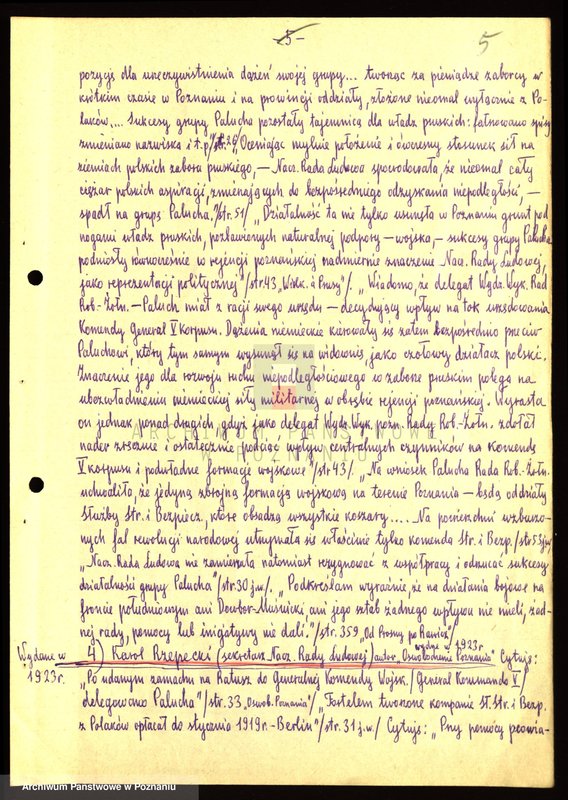 -5-
5
pozycję dla urzeczywistnienia dążeń swojej grupy... tworząc za pieniądze zaborcy w
krótkim czasie w Poznaniu i na prowincji oddziały, złożone nieomal wyłącznie z Po-
laków.... Sukcesy grupy Palucha pozostały tajemnicą dla władz pruskich: fałszowano spisy
zmieniano nazwiska i t.p."/str.29/ "Oceniając mylnie położenie i ówczesny stosunek sił na
ziemiach polskich zaboru pruskiego, – Nacz. Rada Ludowa spowodowała, że nieomal cały
ciężar polskich aspiracji, zmierzających do bezpośredniego odzyskania niepodległości, –
spadł na grupę Palucha."/str.51/ "Działalność ta nie tylko usunęła w Poznaniu grunt pod
nogami władz pruskich, pozbawionych naturalnej podpory – wojska, – sukcesy grupy Palucha
podniosły równocześnie w rejencji poznańskiej nadmiernie znaczenie Nacz. Rady Ludowej,
jako reprezentacji politycznej"/str.43 "Wielk. i Prusy"/. "Wiadomo, że delegat Wydz. Wyk. Rad
Rob.-Żołn. – Paluch miał z racji swego urzędu – decydujący wpływ na tok urzędowania
Komendy Generał V Korpusu. Dążenia niemieckie kierowały się zatem bezpośrednio przeciw
Paluchowi, który tym samym wysunął się na widownię, jako czołowy działacz polski.
Znaczenie jego dla rozwoju ruchu niepodległościowego w zaborze pruskim polega na
ubezwładnieniu niemieckiej siły militarnej w obrębie rejencji poznańskiej. Wyrasta
on jednak ponad drugich gdyż jako delegat Wydz. Wyk. pozn. Rady Rob.-Żołn. zdołał
nader zręcznie i ostatecznie podciąć wpływ centralnych czynników na Komendę
V korpusu i podwładne formacje wojskowe"/str.43/. "Na wniosek Palucha Rada Rob.-Żołn.
uchwaliła, że jedyną zbrojną formacją wojskową na terenie Poznania – będą oddziały
Służby Str. i Bezpiecz., które obsadzą wszystkie koszary..... Na powierzchni wzburzo-
nych fal rewolucji narodowej utrzymała się właściwie tylko komenda Str. i Bezp./str.55 j.w/
"Nacz. Rada Ludowa nie zamierzała natomiast rezygnować z współpracy i odrzucać sukcesy
działalności grupy Palucha"/str.30 j.w./. "Podkreślam wyraźnie, że na działania bojowe na
froncie południowym ani Dowbor-Muśnicki ani jego sztab żadnego wpływu nie mieli, żad-
nej rady, pomocy lub inicjatywy nie dali."/str.359 "Od Prosny po Rawicz"/
wydane w 1923r.
Wydane w
1923r.
4) Karol Rzepecki (sekretarz Nacz. Rady Ludowej) autor "Oswobodzenie Poznania" Cytuję:
"Po udanym zamachu na Ratusz do Generalnej Komendy Wojsk. /General Kommando V/
delegowano Palucha"/str.33 "Oswob. Poznania"/ "Fortelem tworzone kompanie St. Str. i Bezp.
z Polaków opłacał do stycznia 1919r. – Berlin"/str.31 j.w./ Cytuję: "Przy pomocy peowia-
ARCHIWUM PAŃSTWOWE
W POZNANIU
Archiwum Państwowe w Poznaniu